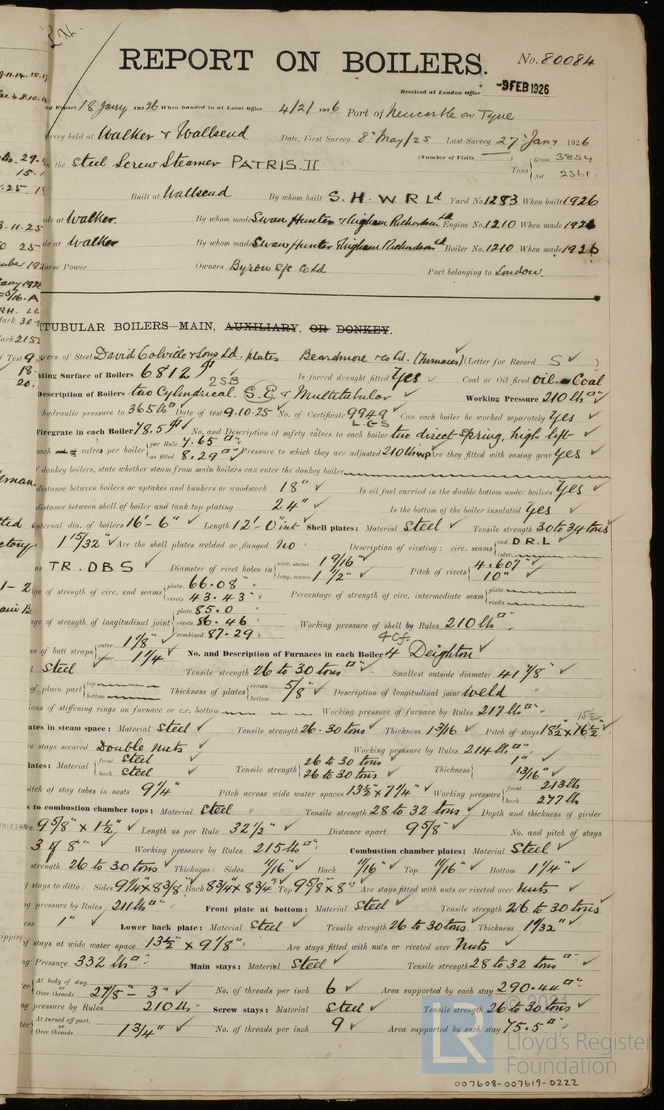 REPORT ON BOILERS.
No. 80084
Received at London Office -9 FEB 1926
Report 18 Jany 1926 When handed in at Local Office 4/2/1926 Port of Newcastle on Tyne
Survey held at Walker & Wallsend Date, First Survey 8th May/25 Last Survey 27th Jany 1926
(Number of Visits)
the Steel Screw Steamer PATRIS II Tons Gross 3854 Net 2361
Built at Wallsend By whom built S. H. W. R Ld Yard No 1283 When built 1926
at Walker By whom made Swan Hunter & Wigham Richardson Ld Engine No 1210 When made 1926
at Walker By whom made Swan Hunter & Wigham Richardson Ld Boiler No 1210 When made 1926
Horse Power Owners Byron S/S Co Ld Port belonging to London
TUBULAR BOILERS MAIN, AUXILIARY, OR DONKEY.
of Steel David Colville & Sons Ld. plates Beardmore & Co Ld. (Furnaces) (Letter for Record S)
Heating Surface of Boilers 6812 Is forced draught fitted Yes Coal or Oil fired oil & Coal
2SB
Description of Boilers two Cylindrical S.E. Multitubular Working Pressure 210 lbs
hydraulic pressure to 365 lbs Date of test 9-10-25 No. of Certificate 9949 Can each boiler be worked separately Yes
Firegrate in each Boiler 78.5 No. and Description of safety valves to each boiler two direct Spring, high lift
each valves per boiler per Rule 7.65 as fitted 8.29 Pressure to which they are adjusted 210 lbs Are they fitted with easing gear yes
donkey boilers, state whether steam from main boilers can enter the donkey boiler
distance between boilers or uptakes and bunkers or woodwork 18" Is oil fuel carried in the double bottom under boilers Yes
distance between shell of boiler and tank top plating 24" Is the bottom of the boiler insulated Yes
internal dia. of boilers 16'-6" Length 12'-0" int Shell plates: Material Steel Tensile strength 30 to 34 tons
1 15/32" Are the shell plates welded or flanged No Description of riveting: circ. seams end D.R.L inter.
TR. DBS Diameter of rivet holes in circ. seams 1 9/16" long. seams 1 1/2" Pitch of rivets 4.607" 10"
of strength of circ. end seams plate 66.08 rivets 43.43 Percentage of strength of circ. intermediate seam plate rivets
of strength of longitudinal joint plate 85.0 rivets 86.46 combined 87.29 Working pressure of shell by Rules 210 lbs
of butt straps outer 1 1/8" inner 1 1/4 No. and Description of Furnaces in each Boiler 4 Deighton
Steel Tensile strength 26 to 30 tons Smallest outside diameter 41 7/8"
of plain part top bottom Thickness of plates crown bottom 5/8" Description of longitudinal joint weld
of stiffening rings on furnace or c.c. bottom Working pressure of furnace by Rules 217 lbs
plates in steam space: Material Steel Tensile strength 26-30 tons Thickness 1 3/16 Pitch of stays 18 1/2 x 16 1/2
stays secured Double nuts Working pressure by Rules 214 lbs
plates: Material front Steel back Steel Tensile strength 26 to 30 tons 26 to 30 tons Thickness 1" 13/16"
Pitch of stay tubes in nests 9 1/4" Pitch across wide water spaces 13 1/2 x 7 3/4" Working pressure front 213 lbs back 277 lbs
to combustion chamber tops: Material Steel Tensile strength 28 to 32 tons Depth and thickness of girder
9 5/8" x 1 1/2" Length as per Rule 32 1/2" Distance apart 9 5/8" No. and pitch of stays
3 of 8" Working pressure by Rules 215 lbs Combustion chamber plates: Material Steel
strength 26 to 30 tons Thickness: Sides 11/16" Back 11/16" Top 11/16" Bottom 1 1/4"
stays to ditto: Sides 9 1/4 x 8 3/8 Back 8 3/4 x 8 3/4 Top 9 5/8 x 8" Are stays fitted with nuts or riveted over nuts
pressure by Rules 211 lbs Front plate at bottom: Material Steel Tensile strength 26 to 30 tons
1" Lower back plate: Material Steel Tensile strength 26 to 30 tons Thickness
of stays at wide water space 13 1/2 x 9 1/8" Are stays fitted with nuts or riveted over Nuts
Pressure 332 lbs Main stays: Material Steel Tensile strength 28 to 32 tons
At body of stay, or Over threads 2 7/8 - 3" No. of threads per inch 6 Area supported by each stay 290.44
pressure by Rules 210 lbs Screw stays: Material Steel Tensile strength 26 to 30 tons
At turned off part, or Over threads 1 3/4" No. of threads per inch 9 Area supported by each stay 75.5
LR
© 2021
Lloyd's Register
Foundation
007608-007619-0222